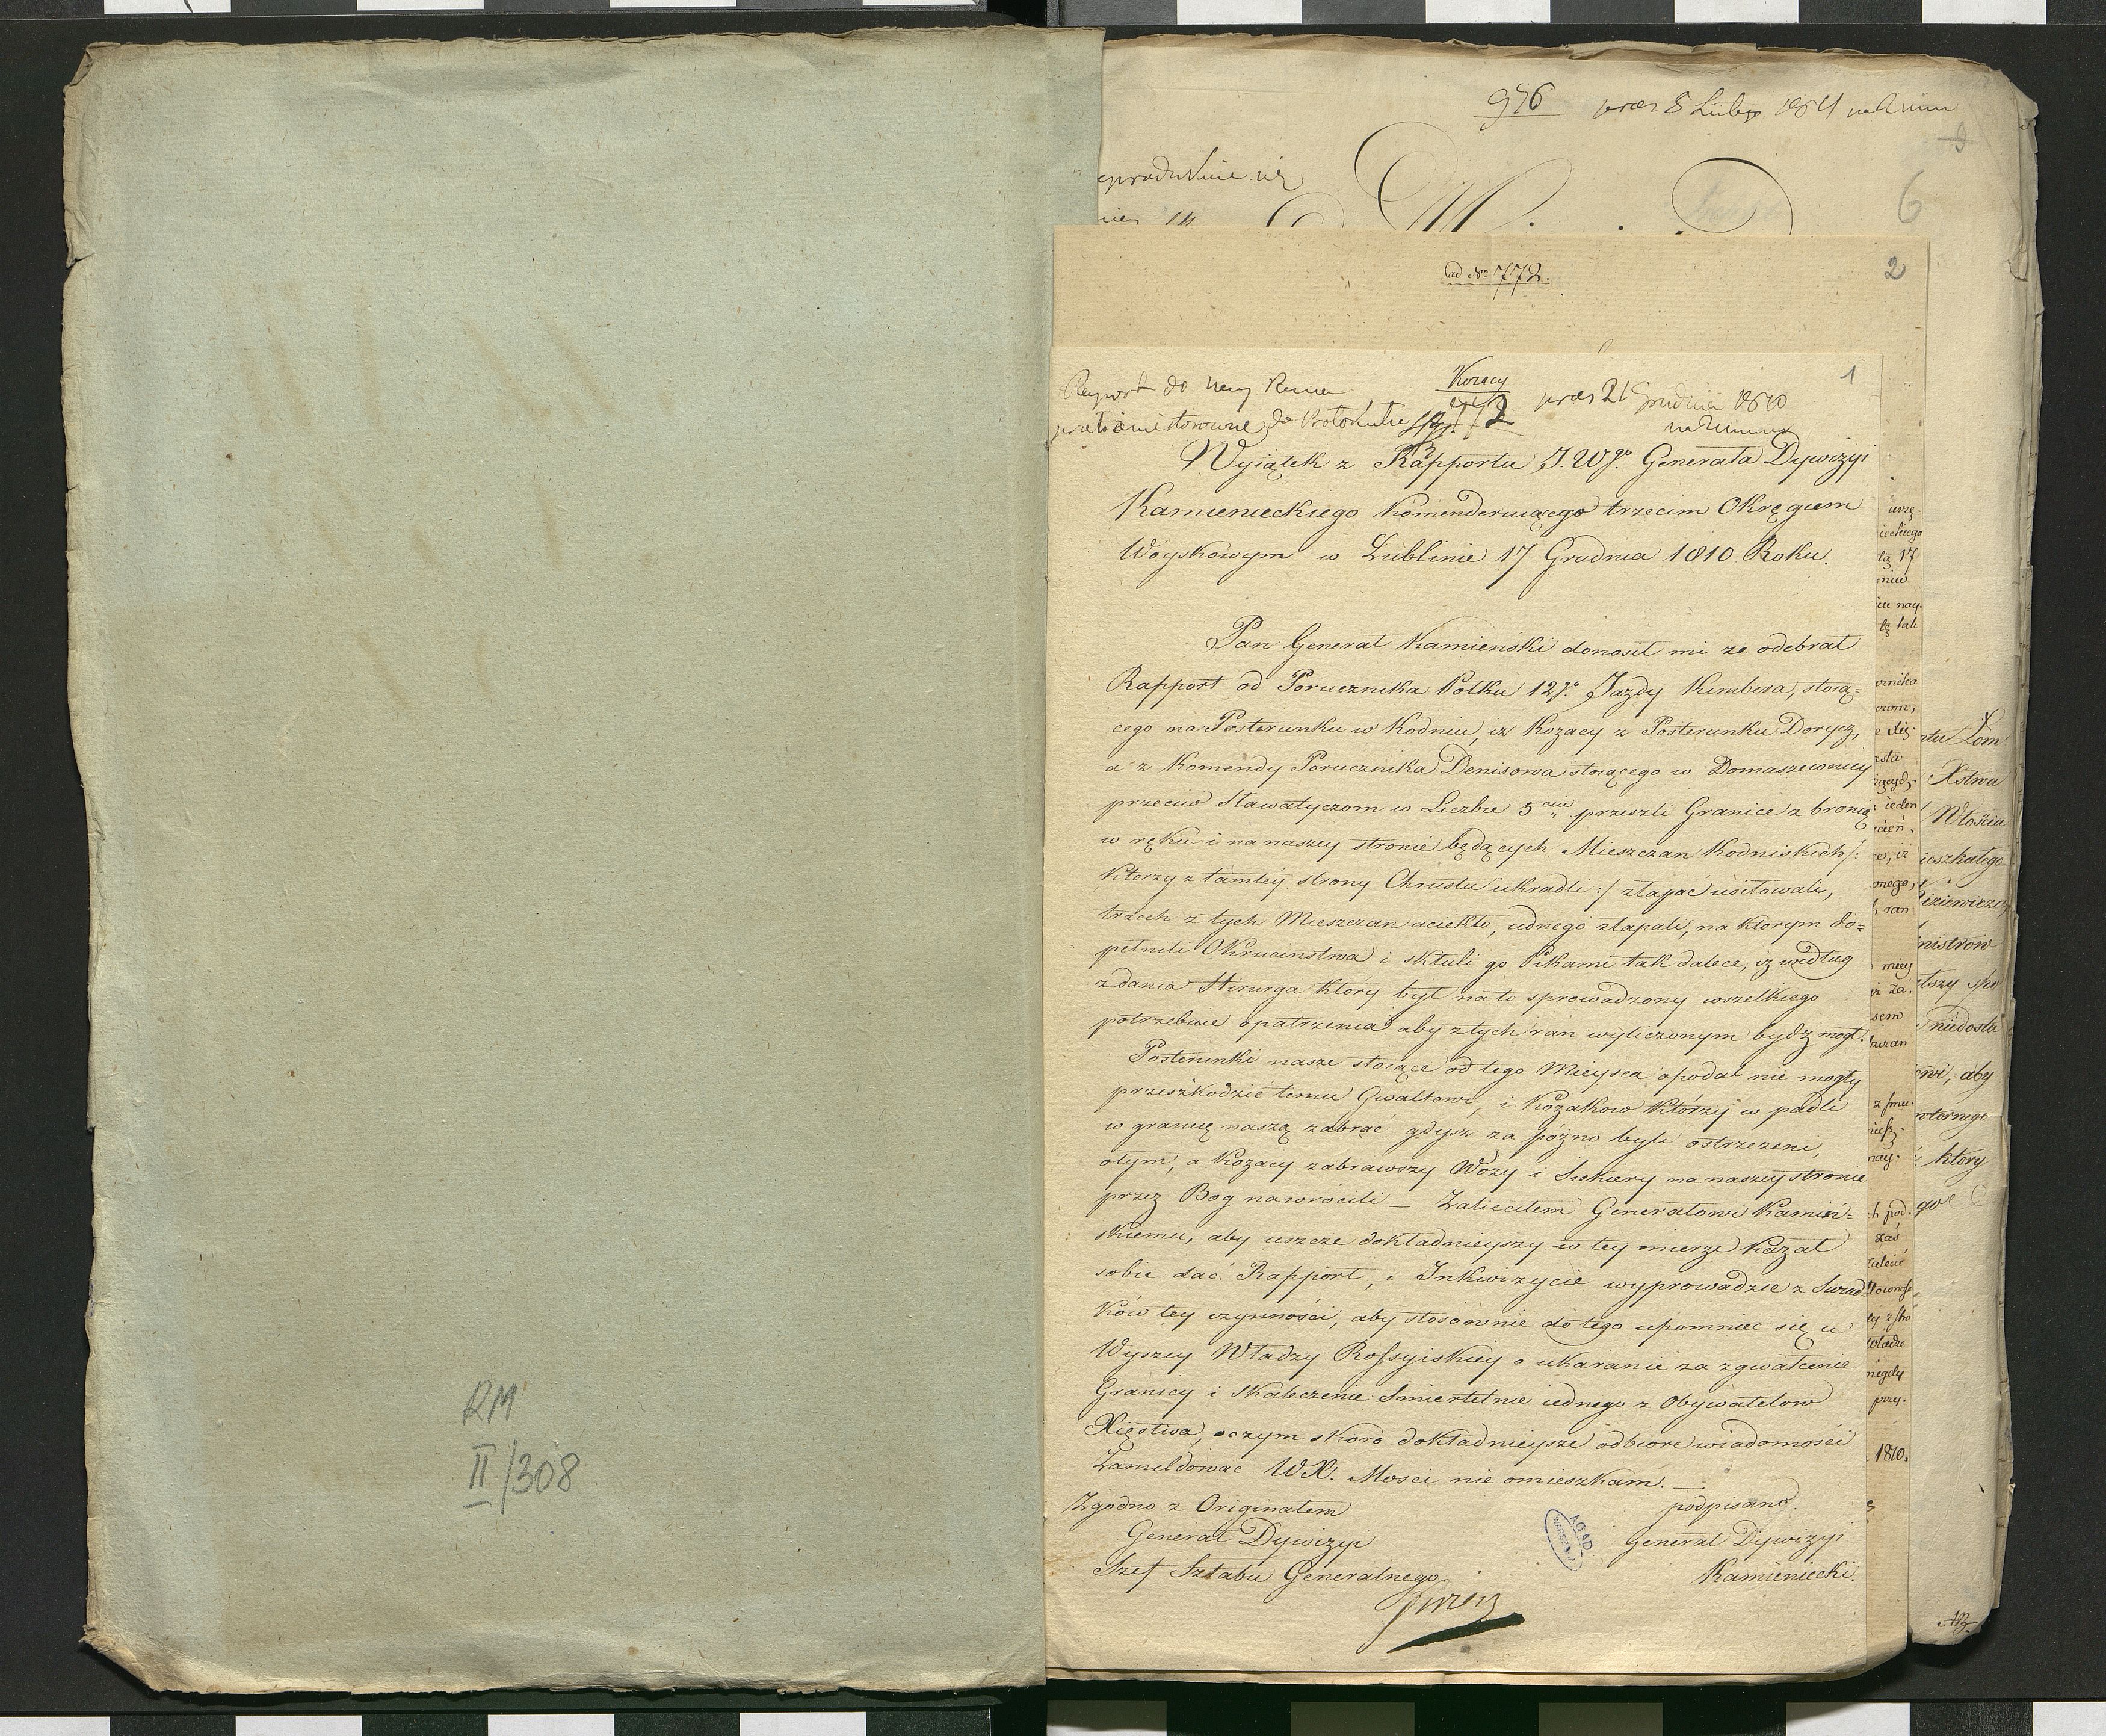 RM
II/308
976 praes 8 Lutego 1811 
6
ad Nrm 772.
2
1
Kozacy
772 praes 21 Grudnia 1810
Rapport do
do Protokułu
Wyiątek z Rapportu J.Wgo. Generała Dywizyi
Kamienieckiego Komenderuiącego trzecim Okręgiem
Woyskowym w Lublinie 17 Grudnia 1810 Roku.
Pan Generał Kamieński donosił mi ze odebrał
Rapport od Porucznika Półku 12go. Jazdy Kimbera, stoią=
cego na Posterunku w Kodniu, iż Kozacy z Posterunku Dorycz,
a z Komendy Porucznika Denisowa stoiącego w Domaszewnicy
przeciw Sławatyczom w Liczbie 5ciu przeszli Granice z bronią
w ręku i na naszey stronie będących Mieszczan Kodniskich /:
Ktorzy z tamtey strony Chrustu ukradli :/ złapać usiłowali,
trzech z tych Mieszczan uciekło, iednego złapali, na ktorym do=
pełnili Okrucinstwa i skłuli go Pikami tak dalece, iż według
zdania Hirurga ktory był na to sprowadzony wszelkiego
potrzebuie opatrzenia aby z tych ran wyliczonym bydz mogł.
Posterunki nasze stoiące od tego Mieysca opodal nie mogły
przeszkodzić temu Gwałtowi, i Kozakow którzy w padli
w granicę naszą zabrać gdysz za późno byli ostrzezeni,
otym, a Kozacy zabrawszy Wozy i Siekiery na naszey stronie
przez Bog nawrócili — Zaleciłem Generałowi Kamień=
skiemu, aby ieszcze dokładnieyszy w tey mierze kazał
sobie dać Rapport, i Inkwizycie wyprowadzić z Swiad=
ków tey czynności, aby stosownie do tego upomnieć się u
Wyszey Władzy Rossyiskiey o ukaranie za zgwałcenie
Granicy i skaleczenie Smiertelnie iednego z Obywatelow
Xięstwa, oczym skoro dokładnieysze odbiorę wiadomości
Zameldować WX. Mości nie omieszkam.
Zgodno z Originałem
podpisano.
Generał Dywizyi
Generał Dywizyi
Szef Sztabu Generalnego.
Kamieniecki.
AGAD
WARSZAWA
1810.